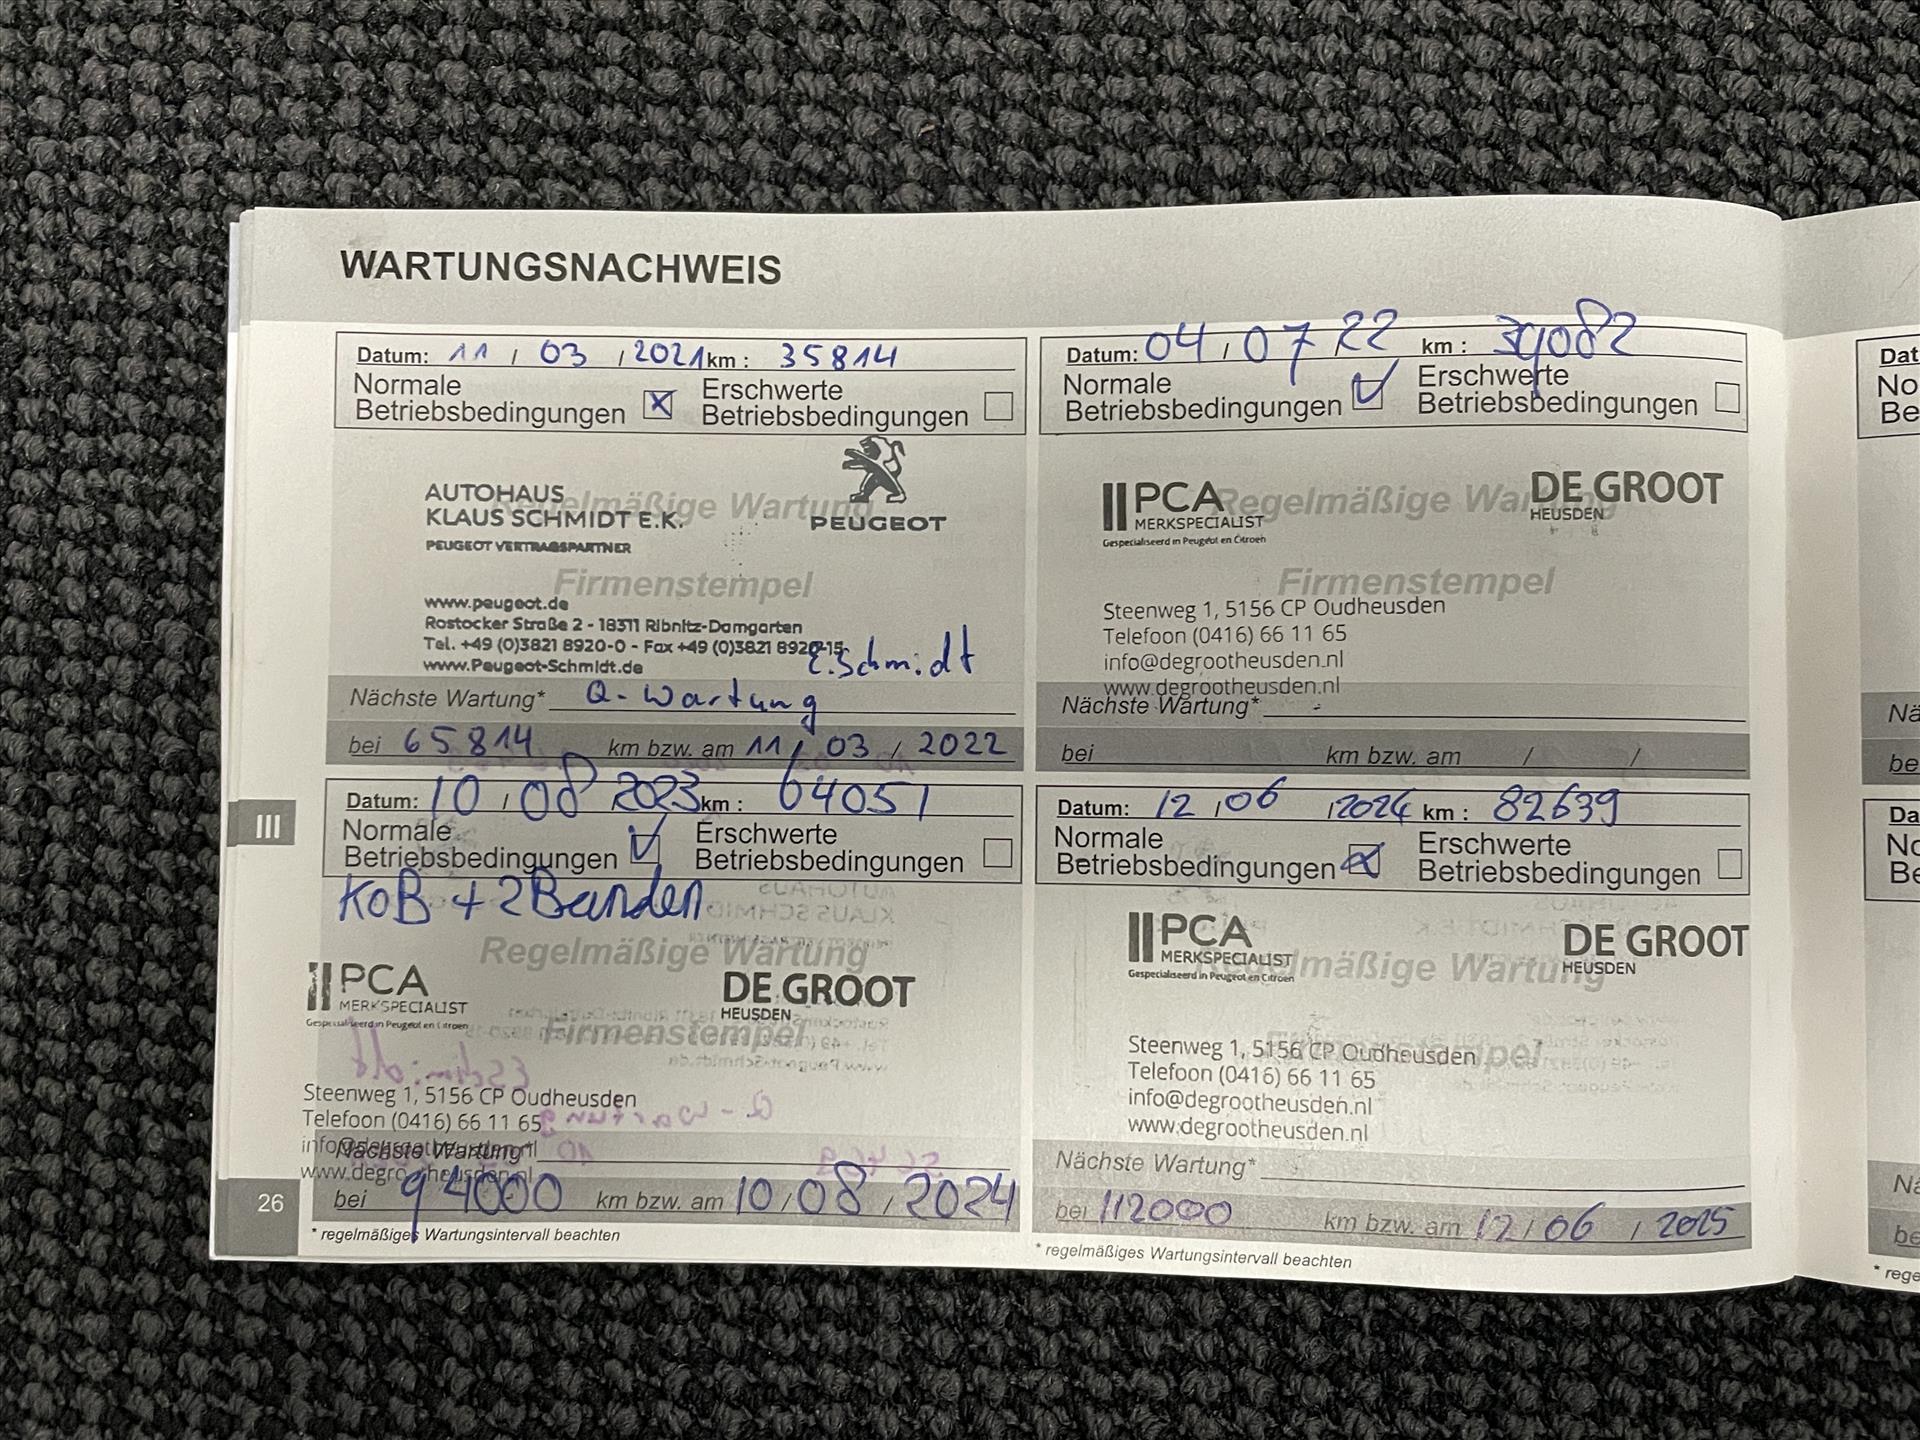 WARTUNGSNACHWEIS
Datum: 11 / 03 / 2021 km : 35814
Normale Betriebsbedingungen
Erschwerte Betriebsbedingungen
Regelmäßige Wartung
AUTOHAUS
KLAUS SCHMIDT E.K.
PEUGEOT VERTRAGSPARTNER
PEUGEOT
Firmenstempel
www.peugeot.de
Rostocker Straße 2 - 18311 Ribnitz-Damgarten
Tel. +49 (0)3821 8920-0 - Fax +49 (0)3821 8920-15
www.Peugeot-Schmidt.de
E.Schmidt
Nächste Wartung* Q-Wartung
bei 65814 km bzw. am 11 / 03 / 2022
Datum: 04 / 07 / 22 km : 39082
Normale Betriebsbedingungen
Erschwerte Betriebsbedingungen
Regelmäßige Wartung
PCA
MERKSPECIALIST
Gespecialiseerd in Peugeot en Citroën
DE GROOT
HEUSDEN
Firmenstempel
Steenweg 1, 5156 CP Oudheusden
Telefoon (0416) 66 11 65
info@degrootheusden.nl
www.degrootheusden.nl
Nächste Wartung*
bei km bzw. am / /
III
Datum: 10 / 08 / 2023 km : 64051
Normale Betriebsbedingungen
Erschwerte Betriebsbedingungen
KOB + 2 Banden
Regelmäßige Wartung
PCA
MERKSPECIALIST
Gespecialiseerd in Peugeot en Citroën
DE GROOT
HEUSDEN
Firmenstempel
Steenweg 1, 5156 CP Oudheusden
Telefoon (0416) 66 11 65
info@degrootheusden.nl
www.degrootheusden.nl
Nächste Wartung*
bei 94000 km bzw. am 10 / 08 / 2024
* regelmäßiges Wartungsintervall beachten
26
Datum: 12 / 06 / 2024 km : 82639
Normale Betriebsbedingungen
Erschwerte Betriebsbedingungen
Regelmäßige Wartung
PCA
MERKSPECIALIST
Gespecialiseerd in Peugeot en Citroën
DE GROOT
HEUSDEN
Firmenstempel
Steenweg 1, 5156 CP Oudheusden
Telefoon (0416) 66 11 65
info@degrootheusden.nl
www.degrootheusden.nl
Nächste Wartung*
bei 112000 km bzw. am 12 / 06 / 2025
* regelmäßiges Wartungsintervall beachten